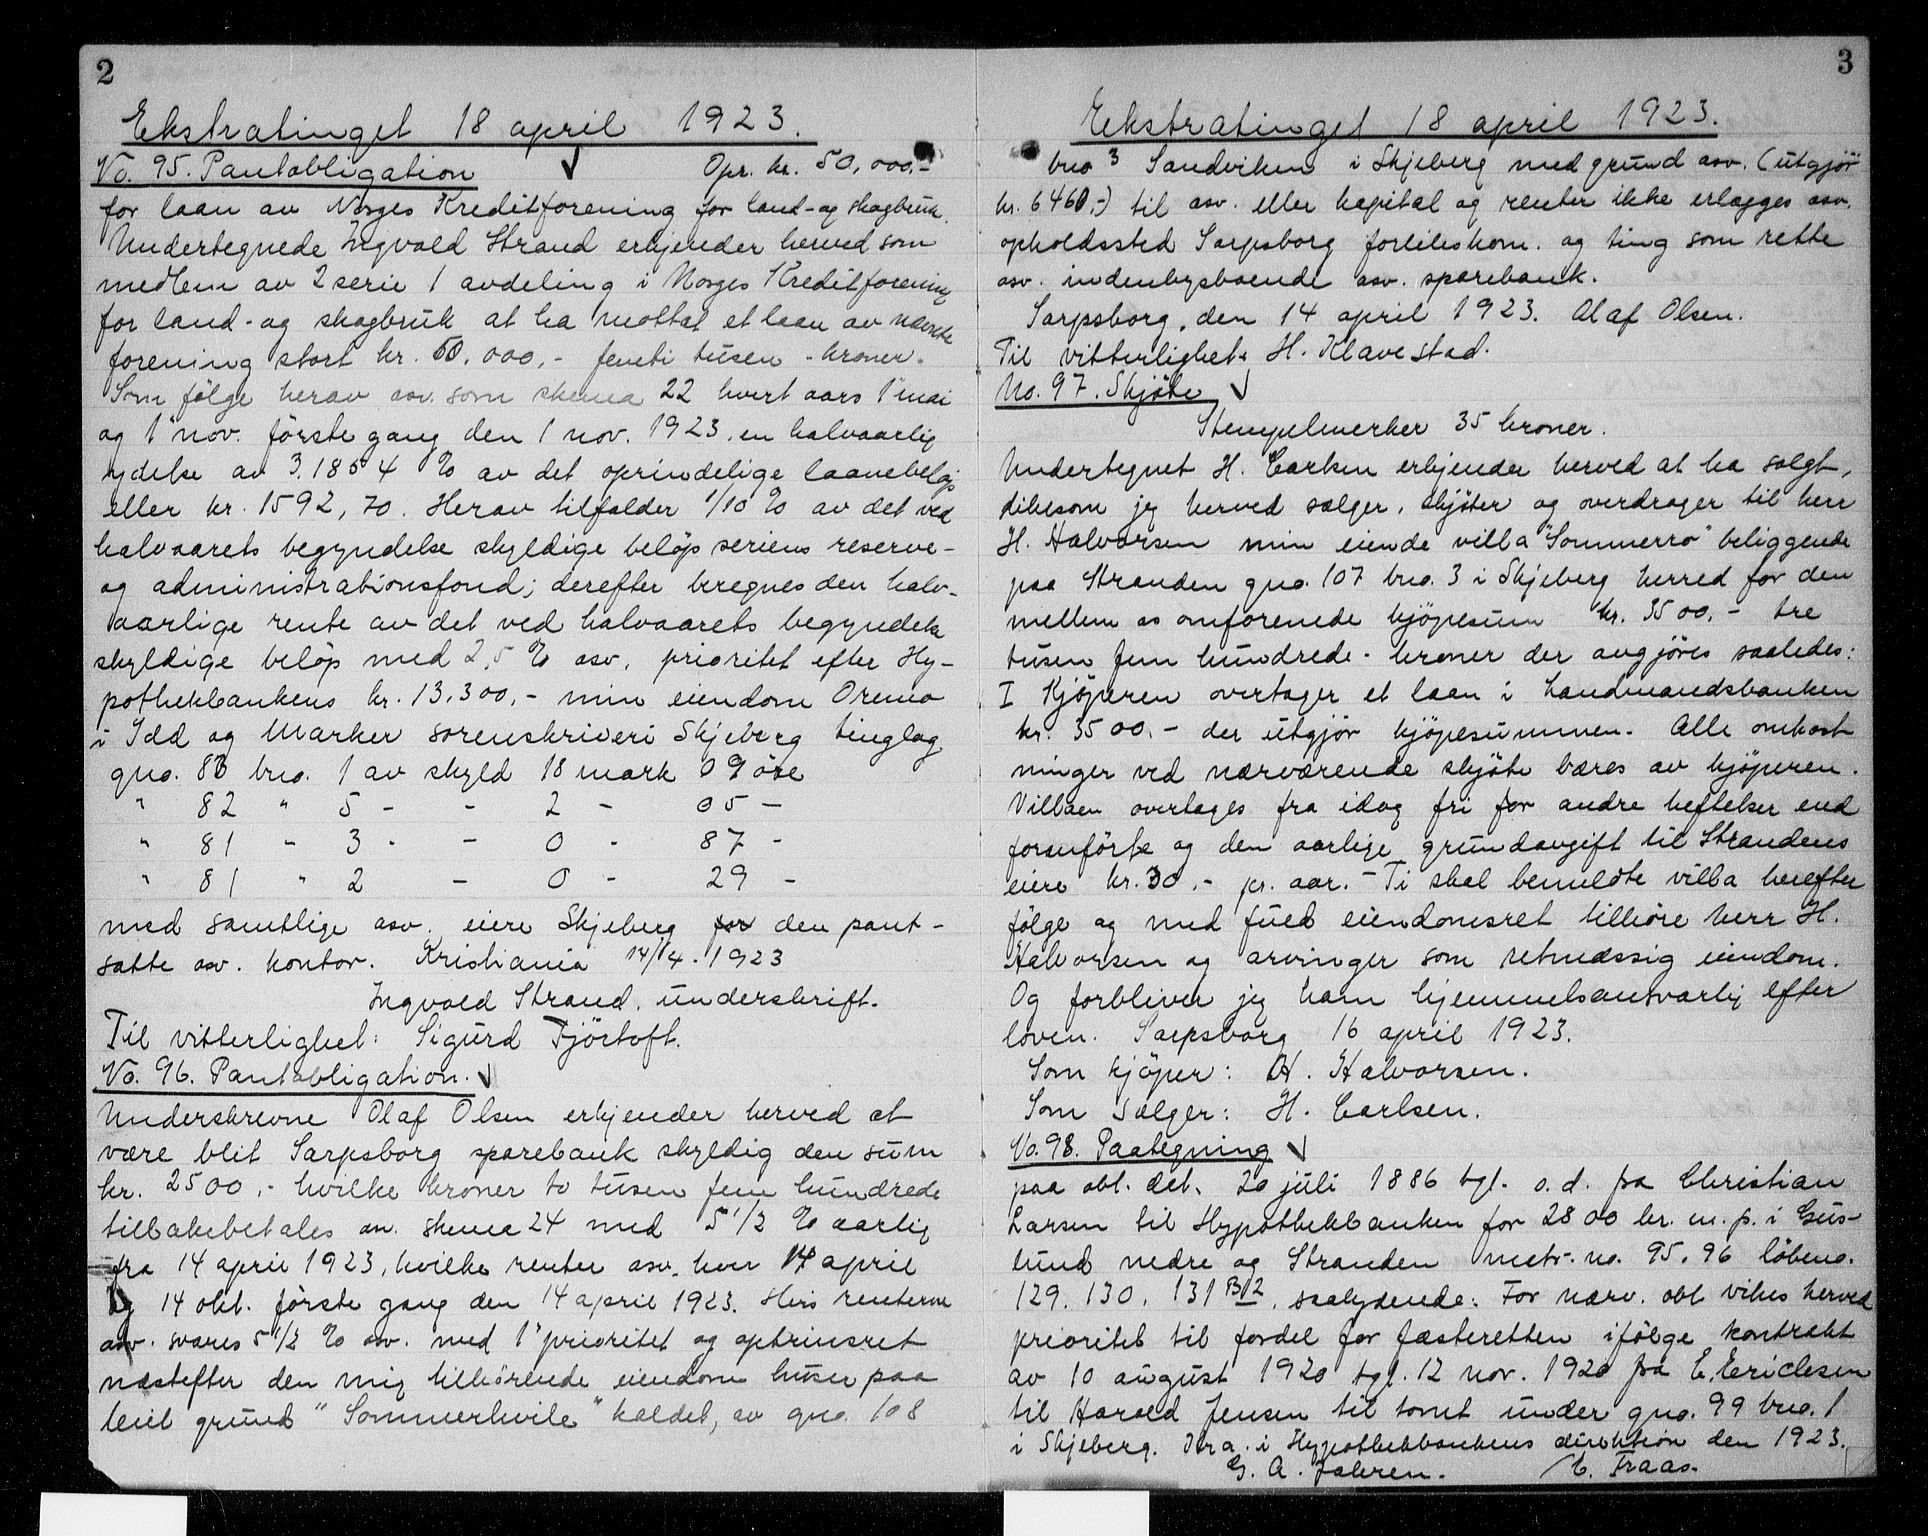 2
Ekstratinget 18 april 1923.
No. 95. Pantobligation Opr. kr. 50,000.-
for laan av Norges Kreditforening for land- og skogbruk.
Undertegnede Ingvald Strand erkjender herved som
medlem av 2 serie 1 avdeling i Norges Kreditforening
for land- og skogbruk at ha mottat et laan av nævnte
forening stort kr. 50.000,- femti tusen - kroner.
Som følge herav osv. som skema 22 hvert aars 1 mai
og 1 nov. første gang den 1 nov. 1923. en halvaarlig
ydelse av 3.1854 % av det oprindelige laanebeløp
eller kr. 1592,70. Herav tilfalder 1/10 % av det ved
halvaarets begyndelse skyldige beløp seriens reserve-
og administrationsfond; derefter beregnes den halv-
aarlige rente av det ved halvaarets begyndelse
skyldige beløp med 2,5 % osv. prioritet efter Hy-
pothekbankens kr. 13.300,- min eiendom Oremo
i Idd og Marker sorenskriveri Skjeberg tinglag
gno. 83 bno. 1 av skyld 18 mark 09 øre
" 82 " 5 - - 2 - 05 -
" 81 " 3 - - 0 - 87 -
" 81 " 2 - 0 - 29 -
med samtlige osv. eiere Skjeberg for den pant-
satte osv. kontor. Kristiania 14/4. 1923
Ingvald Strand. underskrift.
Til vitterlighet: Sigurd Fjörtoft.
No. 96. Pantobligation.
Underskrevne Olaf Olsen erkjender herved at
være blit Sarpsborg sparebank skyldig den sum
kr. 2500,- hvilke kroner to tusen fem hundrede
tilbakebetales an. skema 24 med 5 1/2 % aarlig
fra 14 april 1923, hvilke renter osv. hver 14 april
og 14 okt. første gang den 14 april 1923. Hvis renterne
osv. svares 5 1/2 % osv. med 1" prioritet og optrinsret
næstefter den mig tilhørende eiendom huser paa
leiet grund "Sommerhvile" kaldet, av gno. 108
3
Ekstratinget 18 april 1923.
bno 3 Sandviken i Skjeberg med grund osv. (utgjør
kr. 6460,-) til osv. eller kapital og renter ikke erlægges osv.
opholdssted Sarpsborg forlikskom. og ting som rette
osv. indenbysboende osv. sparebank.
Sarpsborg, den 14 april 1923. Olaf Olsen.
Til vitterlighet: H. Klavestad.
No. 97. Skjöte
Stempelmerker 35 kroner.
Undertegnet H. Carlsen erkjender herved at ha solgt,
likesom jeg herved sælger, skjöter og overdrager til herr
H. Halvorsen min eiende villa "Sommerro" beliggende
paa Stranden gno. 107 bno. 3 i Skjeberg herred for den
mellem os omforenede kjöpesum kr. 3500.- tre
tusen fem hundrede - kroner der avgjöres saaledes:
I Kjöperen overtager et laan i Landmandsbanken
kr. 3500.- der utgjör kjöpesummen. Alle omkost
ninger ved nærværende skjöte bæres av kjöperen.
Villaen overtages fra idag fri for andre heftelser end
foranförte og den aarlige grundavgift til Strandens
eiere kr. 30.- pr. aar. - Ti skal bemeldte villa herefter
følge og med fuld eiendomsret tilhöre herr H.
Halvorsen og arvinger som retmæssig eiendom.
Og forbliver jeg ham hjemmelsansvarlig efter
loven. Sarpsborg 16 april 1923.
Som kjöper: H. Halvorsen.
Som sælger: H. Carlsen.
No. 98. Paategning
paa obl. dat. 20 juli 1886 tgl. s.d. fra Christian
Larsen til Hypothekbanken for 2800 kr. m. p. i Gus-
lund nedre og Stranden matr. no. 95. 96 löbeno.
129. 130. 131 B12. saalydende: For nærv. obl. vikes herved
prioritet til fordel for fæsteretten ifölge kontrakt
av 10 august 1920 tgl. 12 nov. 1920 fra E. Erichsen
til Harald Jensen til tomt under gno. 99 bno. 1
i Skjeberg. i Hypothekbankens direktion den 1923.
G. A. Jahren. C. Fraas.